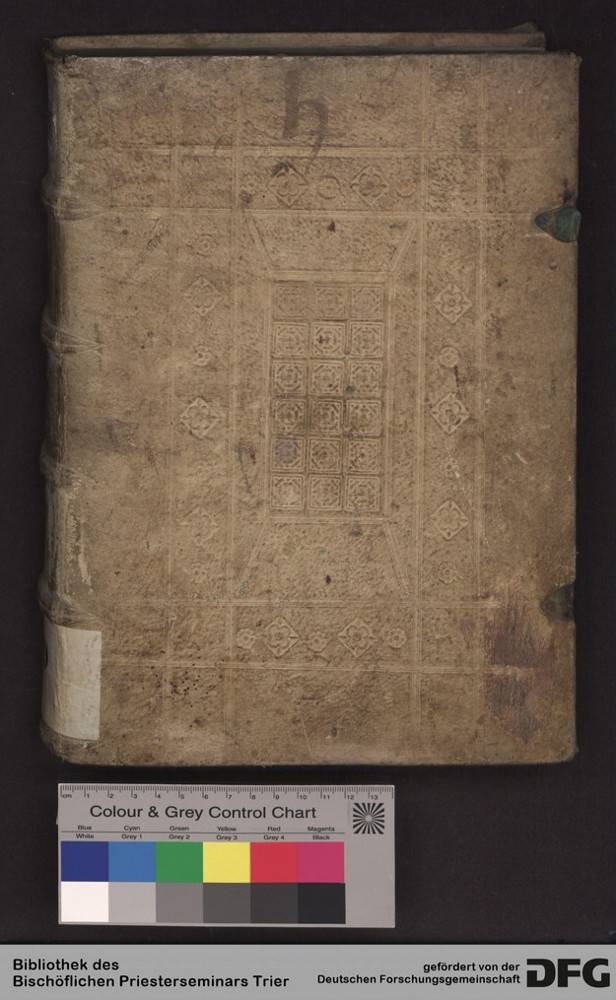 h
cm 1 2 3 4 5 6 7 8 9 10 11 12 13
Colour & Grey Control Chart
Blue Cyan Green Yellow Red Magenta
White Grey 1 Grey 2 Grey 3 Grey 4 Black
Bibliothek des
Bischöflichen Priesterseminars Trier
gefördert von der
Deutschen Forschungsgemeinschaft
DFG